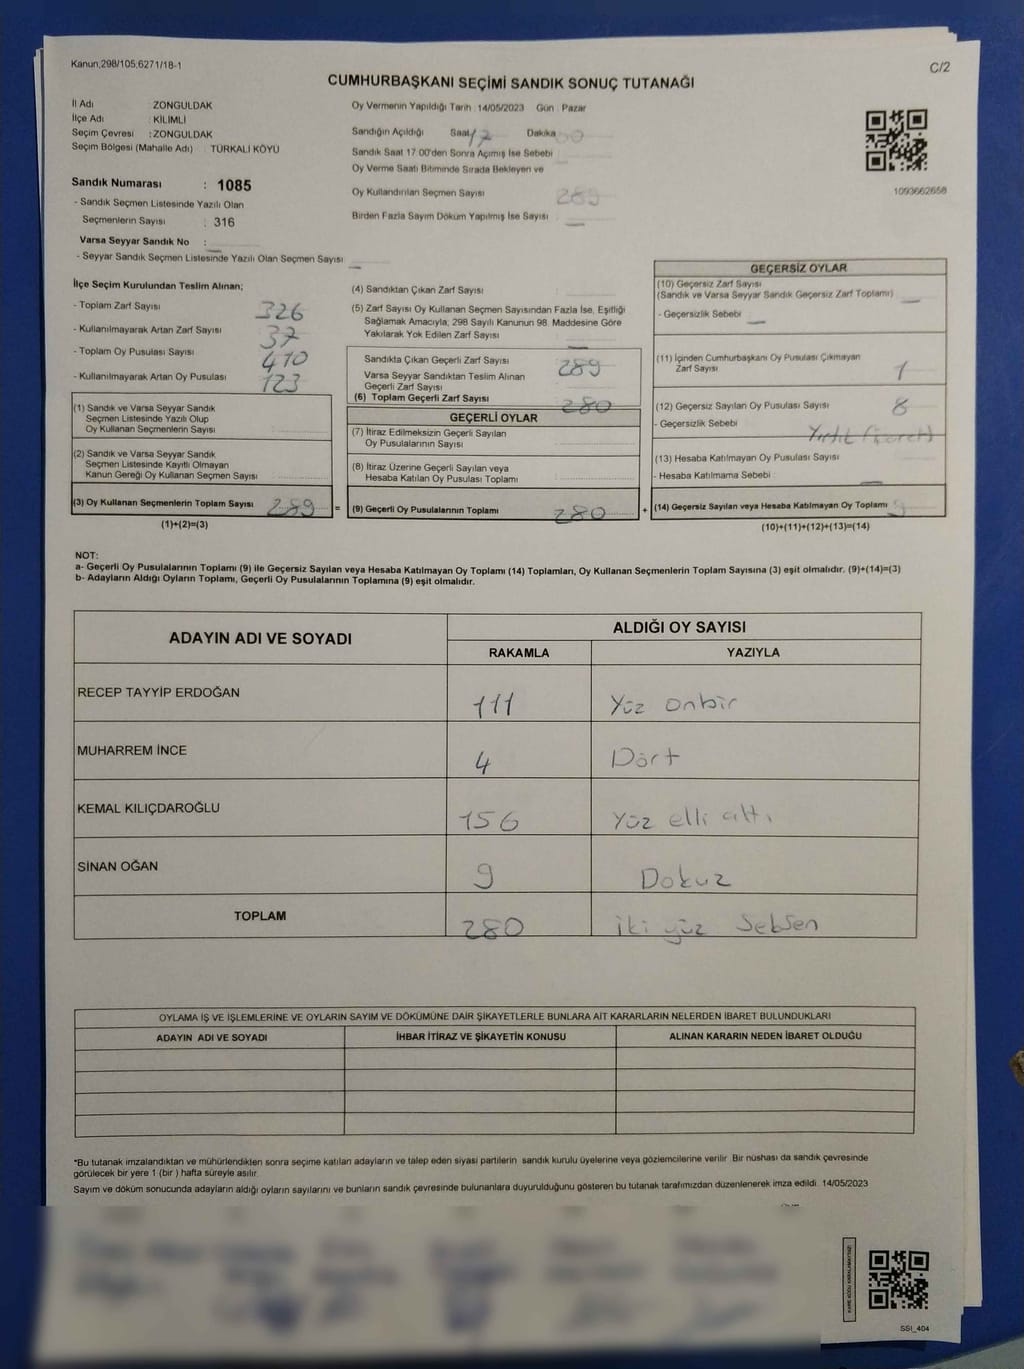 Kanun,298/105,6271/18-1
C/2
CUMHURBAŞKANI SEÇİMİ SANDIK SONUÇ TUTANAĞI
İl Adı : ZONGULDAK
İlçe Adı : KİLİMLİ
Seçim Çevresi : ZONGULDAK
Seçim Bölgesi (Mahalle Adı) : TÜRKALİ KÖYÜ
Sandık Numarası : 1085
- Sandık Seçmen Listesinde Yazılı Olan
Seçmenlerin Sayısı : 316
Varsa Seyyar Sandık No :
- Seyyar Sandık Seçmen Listesinde Yazılı Olan Seçmen Sayısı
Oy Vermenin Yapıldığı Tarih : 14/05/2023 Gün : Pazar
Sandığın Açıldığı Saat 17 Dakika 00
Sandık Saat 17:00'den Sonra Açmış İse Sebebi
Oy Verme Saati Bitiminde Sırada Bekleyen ve
Oy Kullandırılan Seçmen Sayısı 289
Birden Fazla Sayım Döküm Yapılmış İse Sayısı
1093662658
İlçe Seçim Kurulundan Teslim Alınan;
- Toplam Zarf Sayısı 326
- Kullanılmayarak Artan Zarf Sayısı 37
- Toplam Oy Pusulası Sayısı 410
- Kullanılmayarak Artan Oy Pusulası 123
(1) Sandık ve Varsa Seyyar Sandık
Seçmen Listesinde Yazılı Olup
Oy Kullanan Seçmenlerin Sayısı
(2) Sandık ve Varsa Seyyar Sandık
Seçmen Listesinde Kayıtlı Olmayan
Kanun Gereği Oy Kullanan Seçmen Sayısı
(3) Oy Kullanan Seçmenlerin Toplam Sayısı 289
(1)+(2)=(3)
(4) Sandıktan Çıkan Zarf Sayısı
(5) Zarf Sayısı Oy Kullanan Seçmen Sayısından Fazla İse, Eşitliği
Sağlamak Amacıyla, 298 Sayılı Kanunun 98. Maddesine Göre
Yakılarak Yok Edilen Zarf Sayısı
Sandıkta Çıkan Geçerli Zarf Sayısı 289
Varsa Seyyar Sandıktan Teslim Alınan
Geçerli Zarf Sayısı
(6) Toplam Geçerli Zarf Sayısı 280
GEÇERLİ OYLAR
(7) İtiraz Edilmeksizin Geçerli Sayılan
Oy Pusulalarının Sayısı
(8) İtiraz Üzerine Geçerli Sayılan veya
Hesaba Katılan Oy Pusulası Toplamı
= (9) Geçerli Oy Pusulalarının Toplamı 280
GEÇERSİZ OYLAR
(10) Geçersiz Zarf Sayısı
(Sandık ve Varsa Seyyar Sandık Geçersiz Zarf Toplamı)
- Geçersizlik Sebebi
(11) İçinden Cumhurbaşkanı Oy Pusulası Çıkmayan
Zarf Sayısı 1
(12) Geçersiz Sayılan Oy Pusulası Sayısı 8
- Geçersizlik Sebebi Yırtık (işaret)
(13) Hesaba Katılmayan Oy Pusulası Sayısı
- Hesaba Katılmama Sebebi
+ (14) Geçersiz Sayılan veya Hesaba Katılmayan Oy Toplamı 9
(10)+(11)+(12)+(13)=(14)
NOT:
a- Geçerli Oy Pusulalarının Toplamı (9) ile Geçersiz Sayılan veya Hesaba Katılmayan Oy Toplamı (14) Toplamları, Oy Kullanan Seçmenlerin Toplam Sayısına (3) eşit olmalıdır. (9)+(14)=(3)
b- Adayların Aldığı Oyların Toplamı, Geçerli Oy Pusulalarının Toplamına (9) eşit olmalıdır.
ADAYIN ADI VE SOYADI
ALDIĞI OY SAYISI
RAKAMLA YAZIYLA
RECEP TAYYİP ERDOĞAN 111 Yüz onbir
MUHARREM İNCE 4 Dört
KEMAL KILIÇDAROĞLU 156 Yüz elli altı
SİNAN OĞAN 9 Dokuz
TOPLAM 280 iki yüz Seksen
OYLAMA İŞ VE İŞLEMLERİNE VE OYLARIN SAYIM VE DÖKÜMÜNE DAİR ŞİKAYETLERLE BUNLARA AİT KARARLARIN NELERDEN İBARET BULUNDUKLARI
ADAYIN ADI VE SOYADI İHBAR İTİRAZ VE ŞİKAYETİN KONUSU ALINAN KARARIN NEDEN İBARET OLDUĞU
*Bu tutanak imzalandıktan ve mühürlendikten sonra seçime katılan adayların ve talep eden siyasi partilerin sandık kurulu üyelerine veya gözlemcilerine verilir. Bir nüshası da sandık çevresinde
görülecek bir yere 1 (bir ) hafta süreyle asılır.
Sayım ve döküm sonucunda adayların aldığı oyların sayılarını ve bunların sandık çevresinde bulunanlara duyurulduğunu gösteren bu tutanak tarafımızdan düzenlenerek imza edildi. 14/05/2023
SSI_404